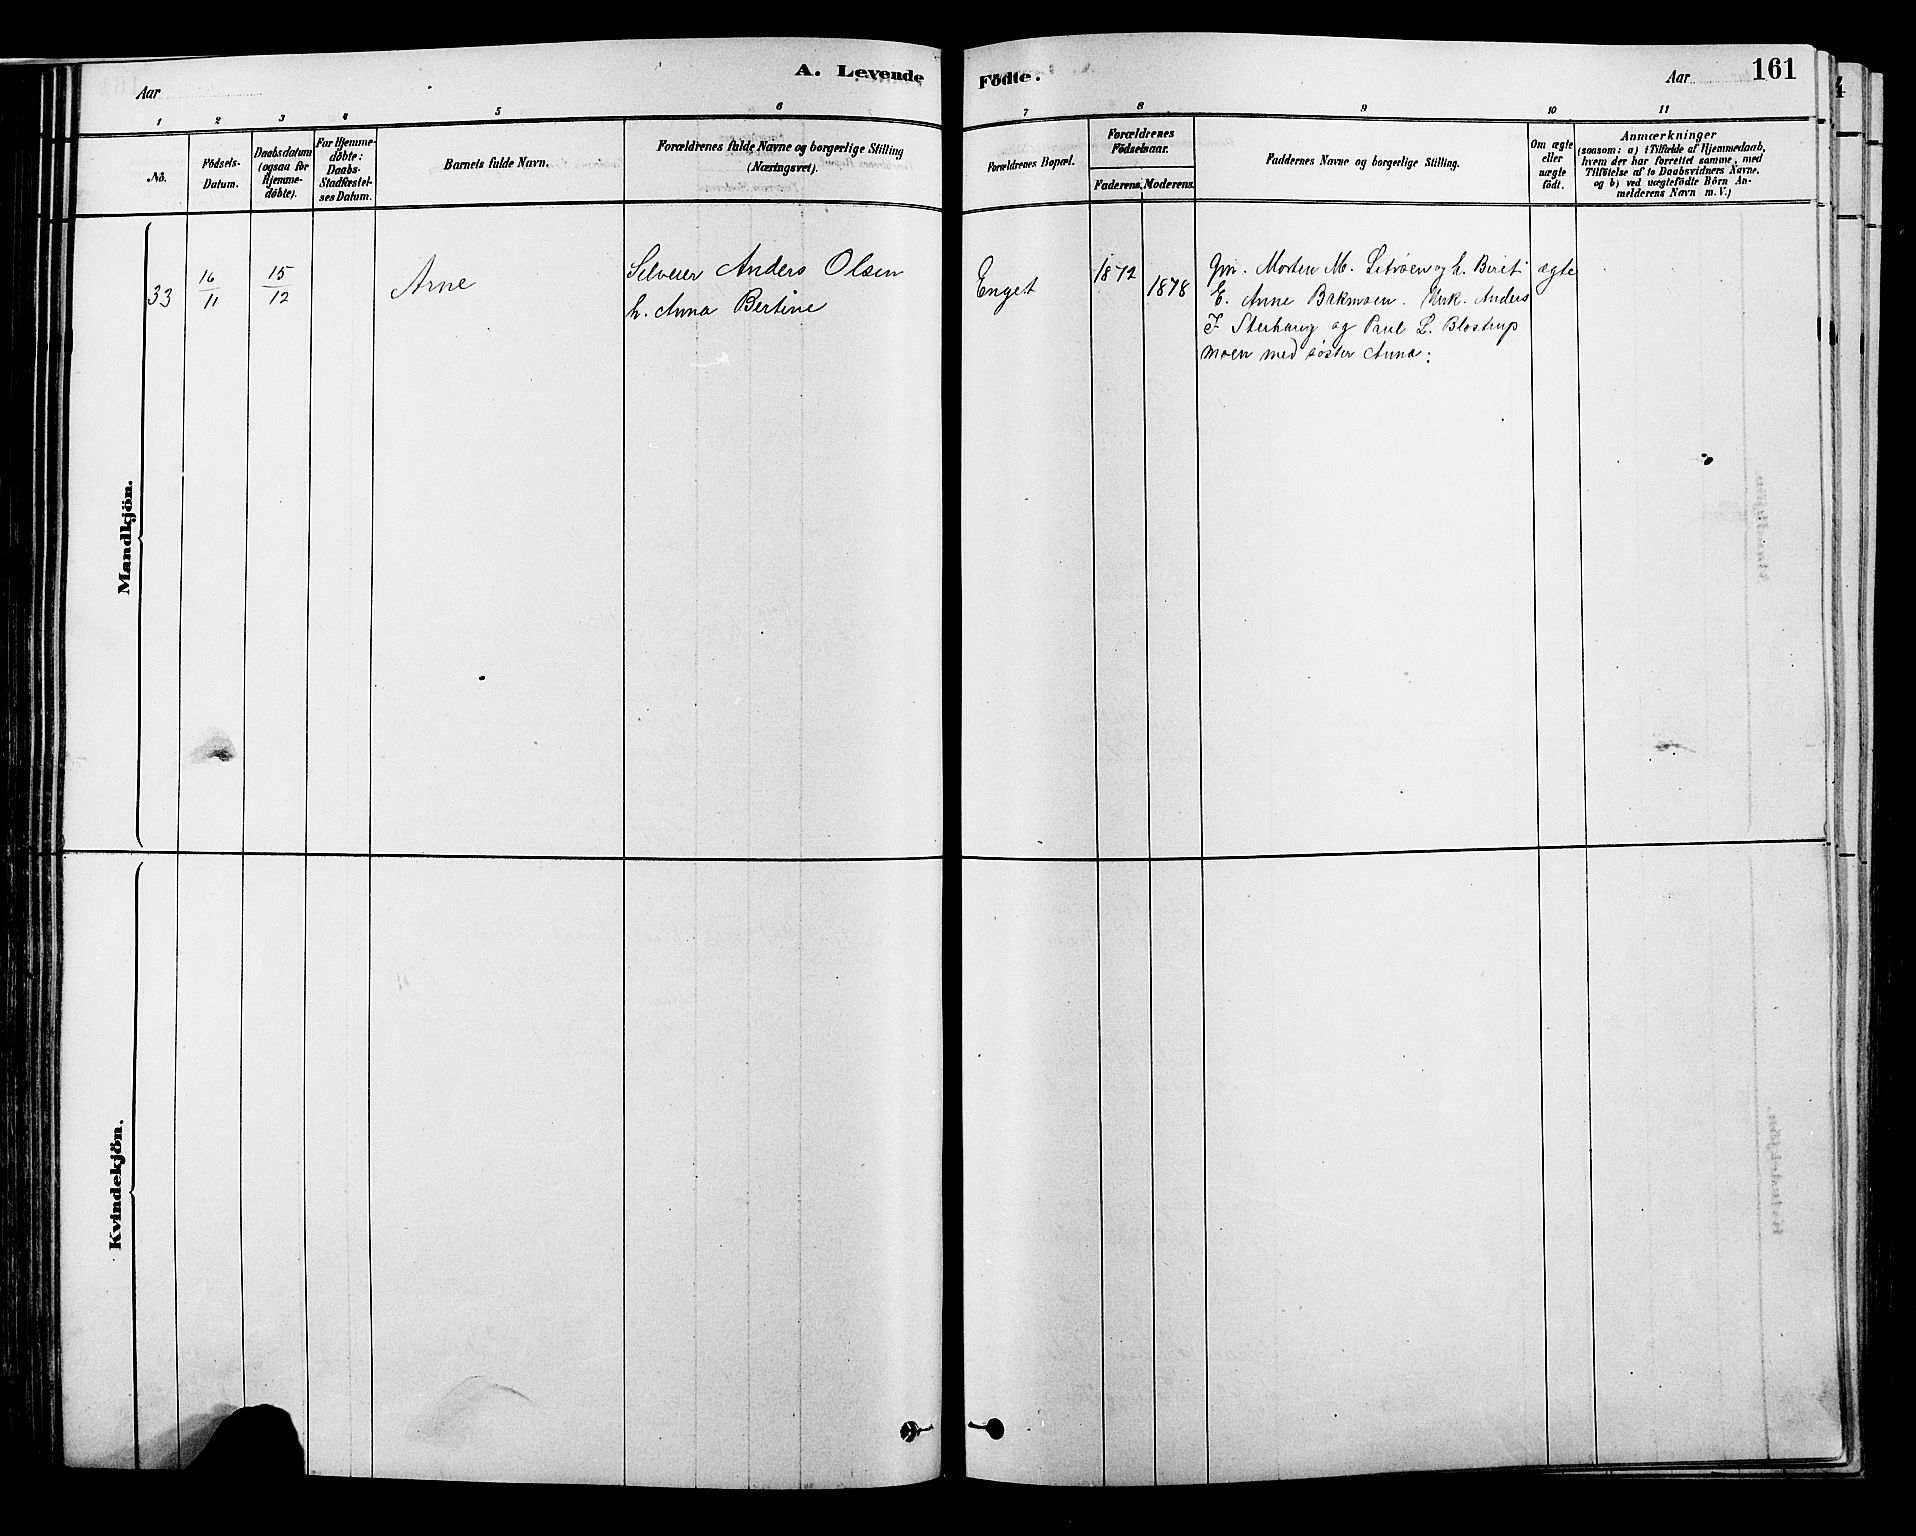 A. Levende Födte.
161
Aar
Aar
1 2 3 4 5 6 7 8 9 10 11
No.
Födsels-
Datum.
Daabsdatum
(ogsaa for
Hjemme-
döbte).
For Hjemme-
döbte:
Daabs-
Stadfæstel-
ses Datum.
Barnets fulde Navn.
Forældrenes fulde Navne og borgerlige Stilling
(Næringsvei).
Forældrenes Bopæl.
Forældrenes
Födselsaar.
Faderens. Moderens.
Faddernes Navne og borgerlige Stilling.
Om ægte
eller
uægte
födt.
Anmærkninger
(saasom: a) i Tilfælde af Hjemmedaab,
hvem der har forrettet samme, med
Tilföielse af to Daabsvidners Navne,
og b) ved uægtefödte Börn An-
melderens Navn m. V.)
Mandkjön.
33
16/11
15/12
Arne
Selveier Anders Olsen
h. Anna Bertine
Enget
1872
1878
Gm. Morten M. og h. Berit
E. Anne Bakmoen. Unk. Anders
og Paul L. Blostrup
moen med søster Anna:
ægte
Kvindekjön.